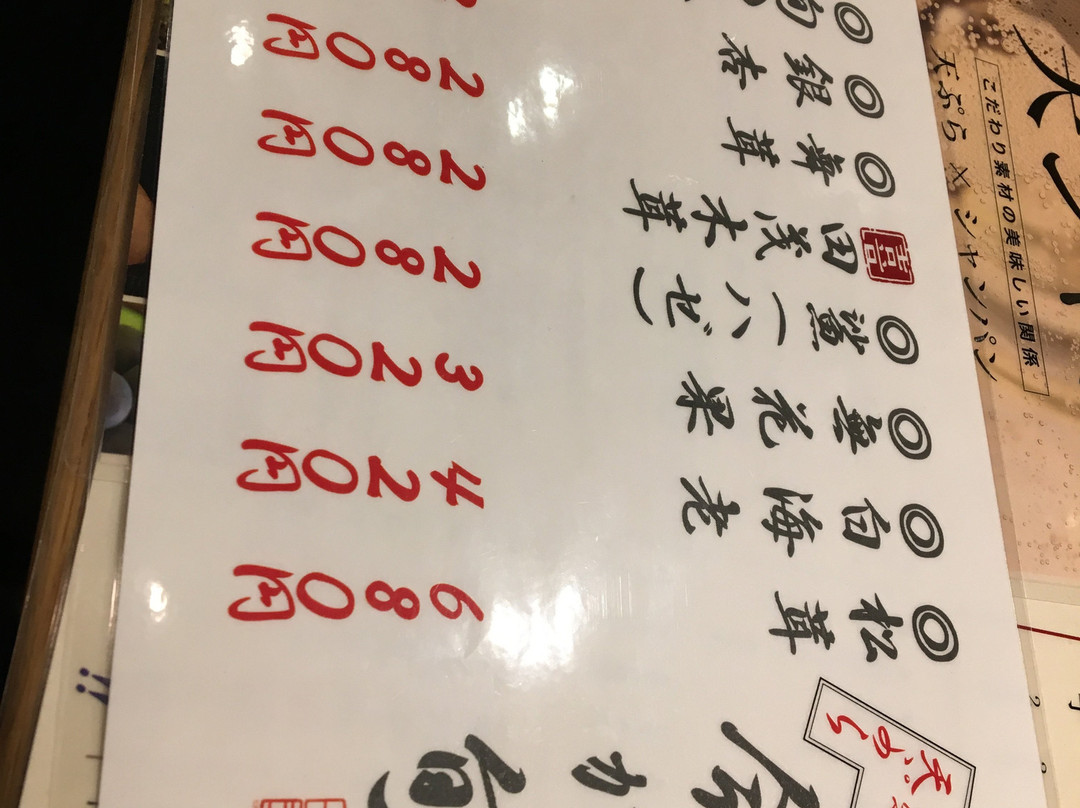 天ぷら
◎松茸 680円
◎白海老 420円
◎無花果 320円
◎鯊(ハゼ) 280円
喜 田茂木茸 280円
◎舞茸 280円
◎銀杏
こだわり素材の美味しい関係
天ぷら×シャンパン